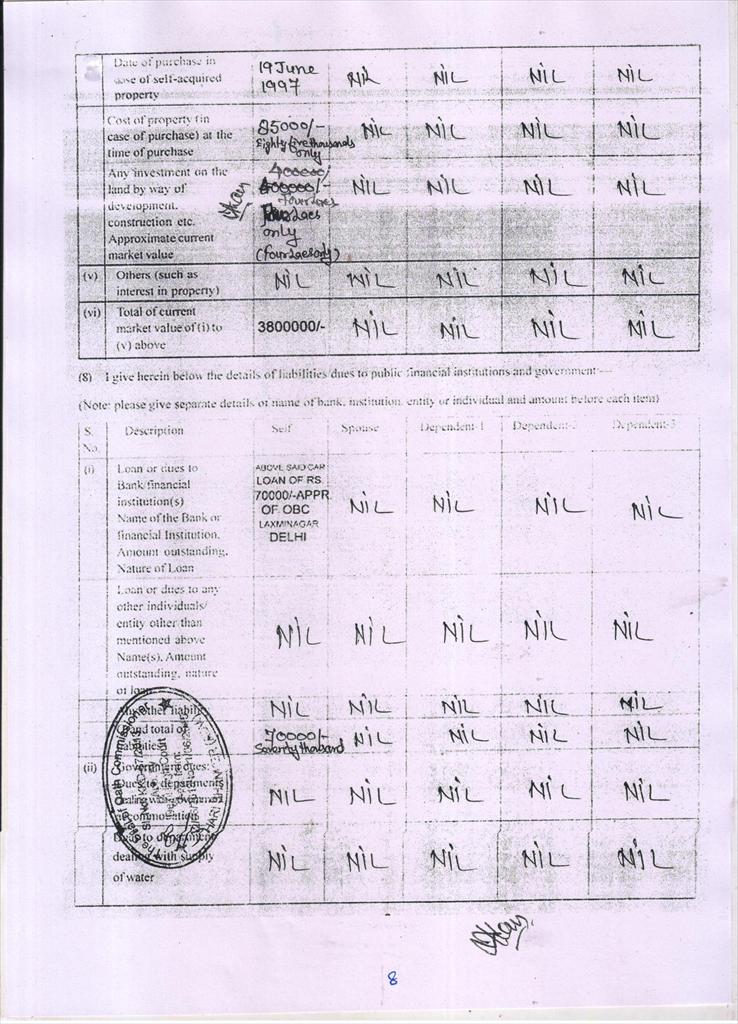 Date of purchase in 19 June NIL NIL NIL NIL
case of self-acquired 1997
property
Cost of property (in 85000/- NIL NIL NIL NIL
case of purchase) at the Eighty five thousands
time of purchase only
Any investment on the 400000/ NIL NIL NIL NIL
land by way of 400000/-
development, four Lacs
construction etc. Four Lacs
Approximate current only
market value (four Lacs only)
(v) Others (such as NIL NIL NIL NIL NIL
interest in property)
(vi) Total of current 3800000/- NIL NIL NIL NIL
market value of (i) to
(v) above
(8) I give herein below the details of liabilities dues to public financial institutions and government:—
(Note: please give separate details of name of bank, institution, entity or individual and amount before each item)
S. Description Self Spouse Dependent-1 Dependent-2 Dependent-3
No.
(i) Loan or dues to ABOVE SAID CAR NIL NIL NIL NIL
Bank/financial LOAN OF RS.
institution(s) 70000/-APPR.
Name of the Bank or OF OBC
financial Institution, LAXMINAGAR
Amount outstanding, DELHI
Nature of Loan
Loan or dues to any NIL NIL NIL NIL NIL
other individuals/
entity other than
mentioned above
Name(s), Amount
outstanding, nature
of loan
other liability NIL NIL NIL NIL NIL
and total of 70000/- NIL NIL NIL NIL
liabilities Seventy thousand
(ii) Government dues: NIL NIL NIL NIL NIL
dues to departments
dealing with government
accommodation
Dues to department NIL NIL NIL NIL NIL
dealing with supply
of water
Oath Commissioner
8